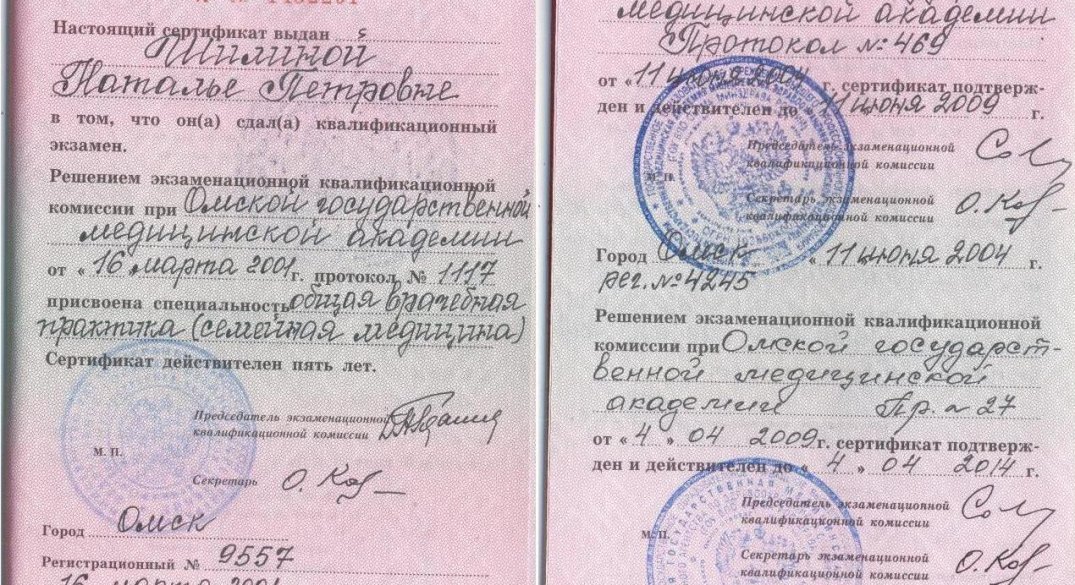 Настоящий сертификат выдан
Шилиной
Наталье Петровне
в том, что он(а) сдал(а) квалификационный
экзамен.
Решением экзаменационной квалификационной
комиссии при Омской государственной
медицинской академии
от « 16 марта 2001 г. протокол № 1117
присвоена специальность общая врачебная
практика (семейная медицина)
Сертификат действителен пять лет.
Председатель экзаменационной
квалификационной комиссии
М. П.
Секретарь
Город Омск
Регистрационный № 9557
16 марта 2001
медицинской академии
Протокол № 469
от « 11 июня 2004 г. сертификат подтверж-
ден и действителен до « 11 июня 2009 г.
Председатель экзаменационной
квалификационной комиссии
М. П.
Секретарь экзаменационной
квалификационной комиссии
Город Омск « 11 июня 2004 г.
рег. № 4245
Решением экзаменационной квалификационной
комиссии при Омской государст-
венной медицинской
академии Пр. № 27
от « 4 » 04 2009 г. сертификат подтверж-
ден и действителен до « 4 » 04 2014 г.
Председатель экзаменационной
квалификационной комиссии
М. П.
Секретарь экзаменационной
квалификационной комиссии